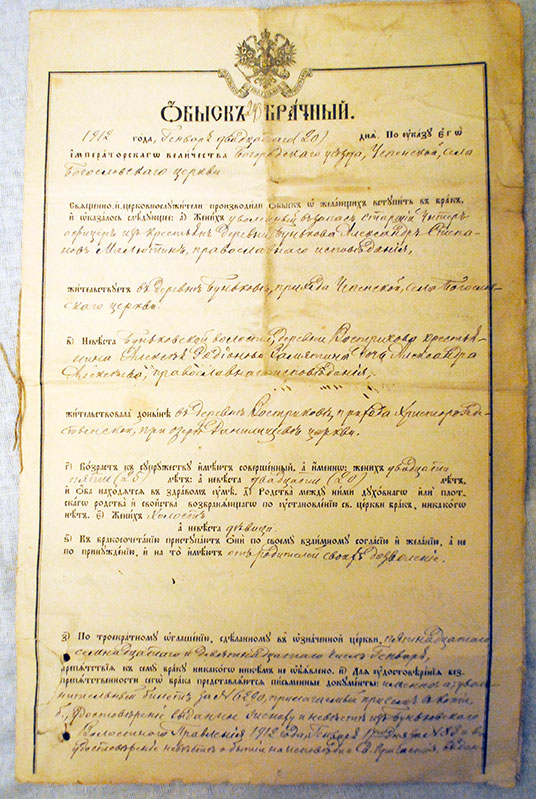 ѠБЫСКЪ БРАЧНЫЙ.
1912 года, Генваря двадцатаго (20) дня. По указу ЕГѠ
ІМПЕРАТОРСКАГѠ ВЕЛИЧЕСТВА Богородскаго уѣзда, Успенской, села
Богословскаго церкви
Священно-и-церковнослужители производили ѡбыскъ ѡ желающихъ вступить въ бракъ,
и ѡказалось слѣдующее: а) Женихъ уволенный въ запасъ старшій унтеръ
офицеръ изъ крестьянъ деревни Бунькова Александръ Степа-
новъ православнаго исповѣданія,
жительствуетъ въ деревнѣ Буньковѣ, прихода Успенской, села Богослов-
скаго церкви.
б) Невѣста Буньковской волости, деревни Костыркова крестья-
нина Родіонова дочь Александра
Алексѣева, православнаго исповѣданія,
жительствовала донынѣ въ деревнѣ прихода Христорожде-
ственской, при озерѣ церкви.
г) Возрастъ къ супружеству имѣютъ совершенный, а именнѡ: женихъ двадцати
пяти (25) лѣтъ: а невѣста двадцати (20) лѣтъ,
и ѡба находятся въ здравомъ умѣ. д) Родства между ними духовнагѡ или плот-
скагѡ родства и свойства возбраняющагѡ по установленію св. церкви бракъ, никакогѡ
нѣтъ. е) Женихъ холостъ
а невѣста дѣвица.
ѕ) Къ бракосочетанію приступаютъ ѻни по своему взаимному согласію и желанію, а не
по принужденію, и на то имѣютъ отъ родителей своихъ дозволеніе.
з) По троекратному ѡглашенію, сдѣланному въ ѡзначенной церкви, пятнадцатаго
семнадцатаго и девятнадцатаго чиселъ Генваря,
препятствія къ сему браку никакогѡ никѣмъ не ѡбъявлено. и) Для удостовѣренія без-
препятственности сегѡ брака представляются письменные документы: а) уволь-
нительный билетъ за № 6290,
б) удостовѣреніе выданное жениху и невѣстѣ изъ Буньковскаго
Волостного Правленія 1912 года Генваря за № 183 и в)
удостовѣреніе невѣсты о бытіи на исповѣди и Св. Причастія,